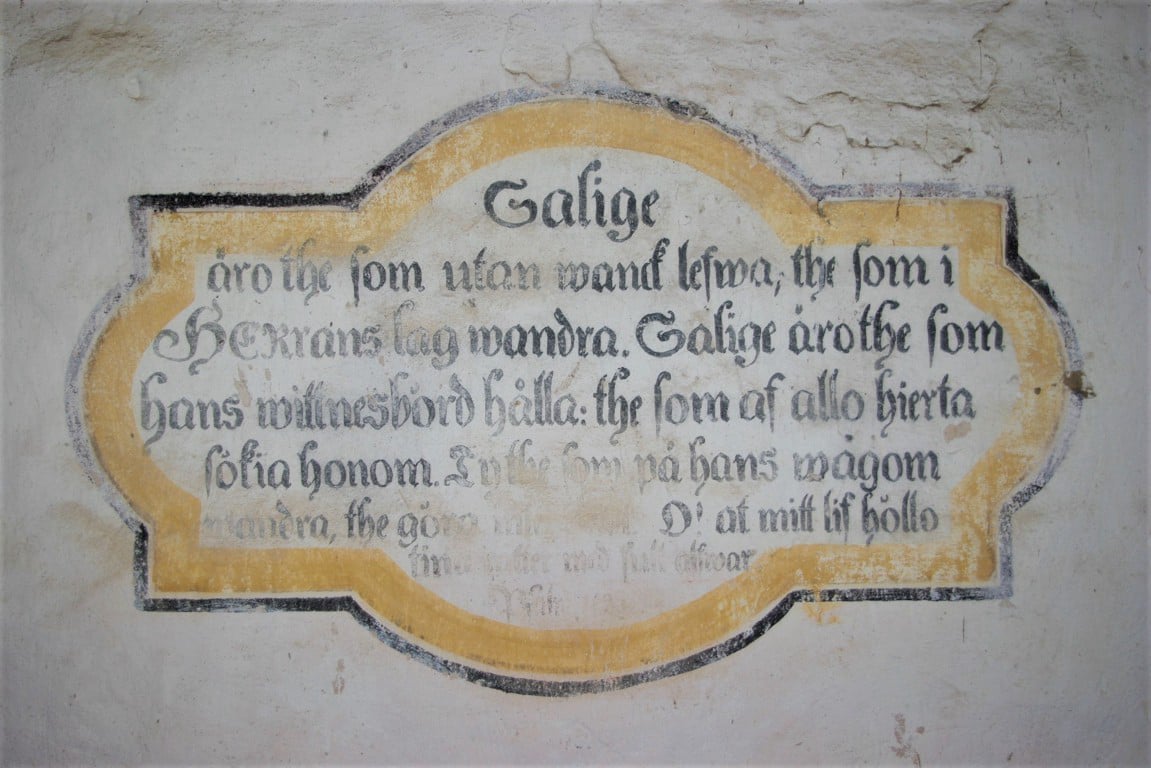 Salige
äro the som utan wanck lefwa, the som i
HERrans lag wandra. Salige äro the som
hans wittnesbörd hålla: the som af allo hierta
sökia honom. Ty the som på hans wägom
wandra, the göra O! at mitt lif höllo
tina med full alfwar